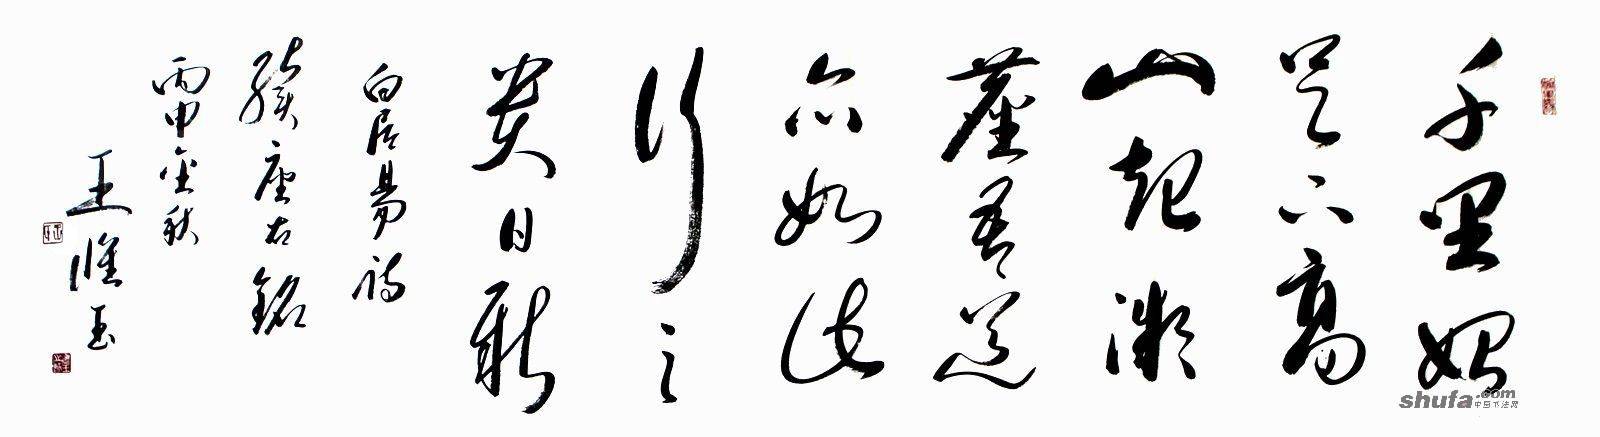 千里始
足下高
山起微
塵吾道
亦如此
行之
贵日新
白居易詩
續座右銘
丙申金秋
王惟玉
shufa.com
中国书法网